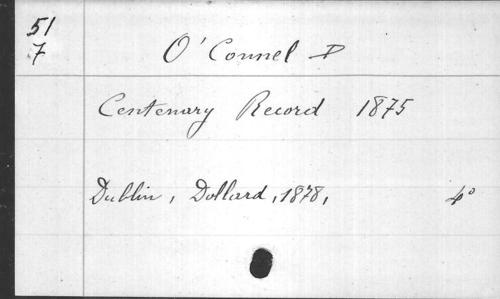 51
7
O'Connel D
Centenary Record 1875
Dublin, Dollard, 1878, 4°